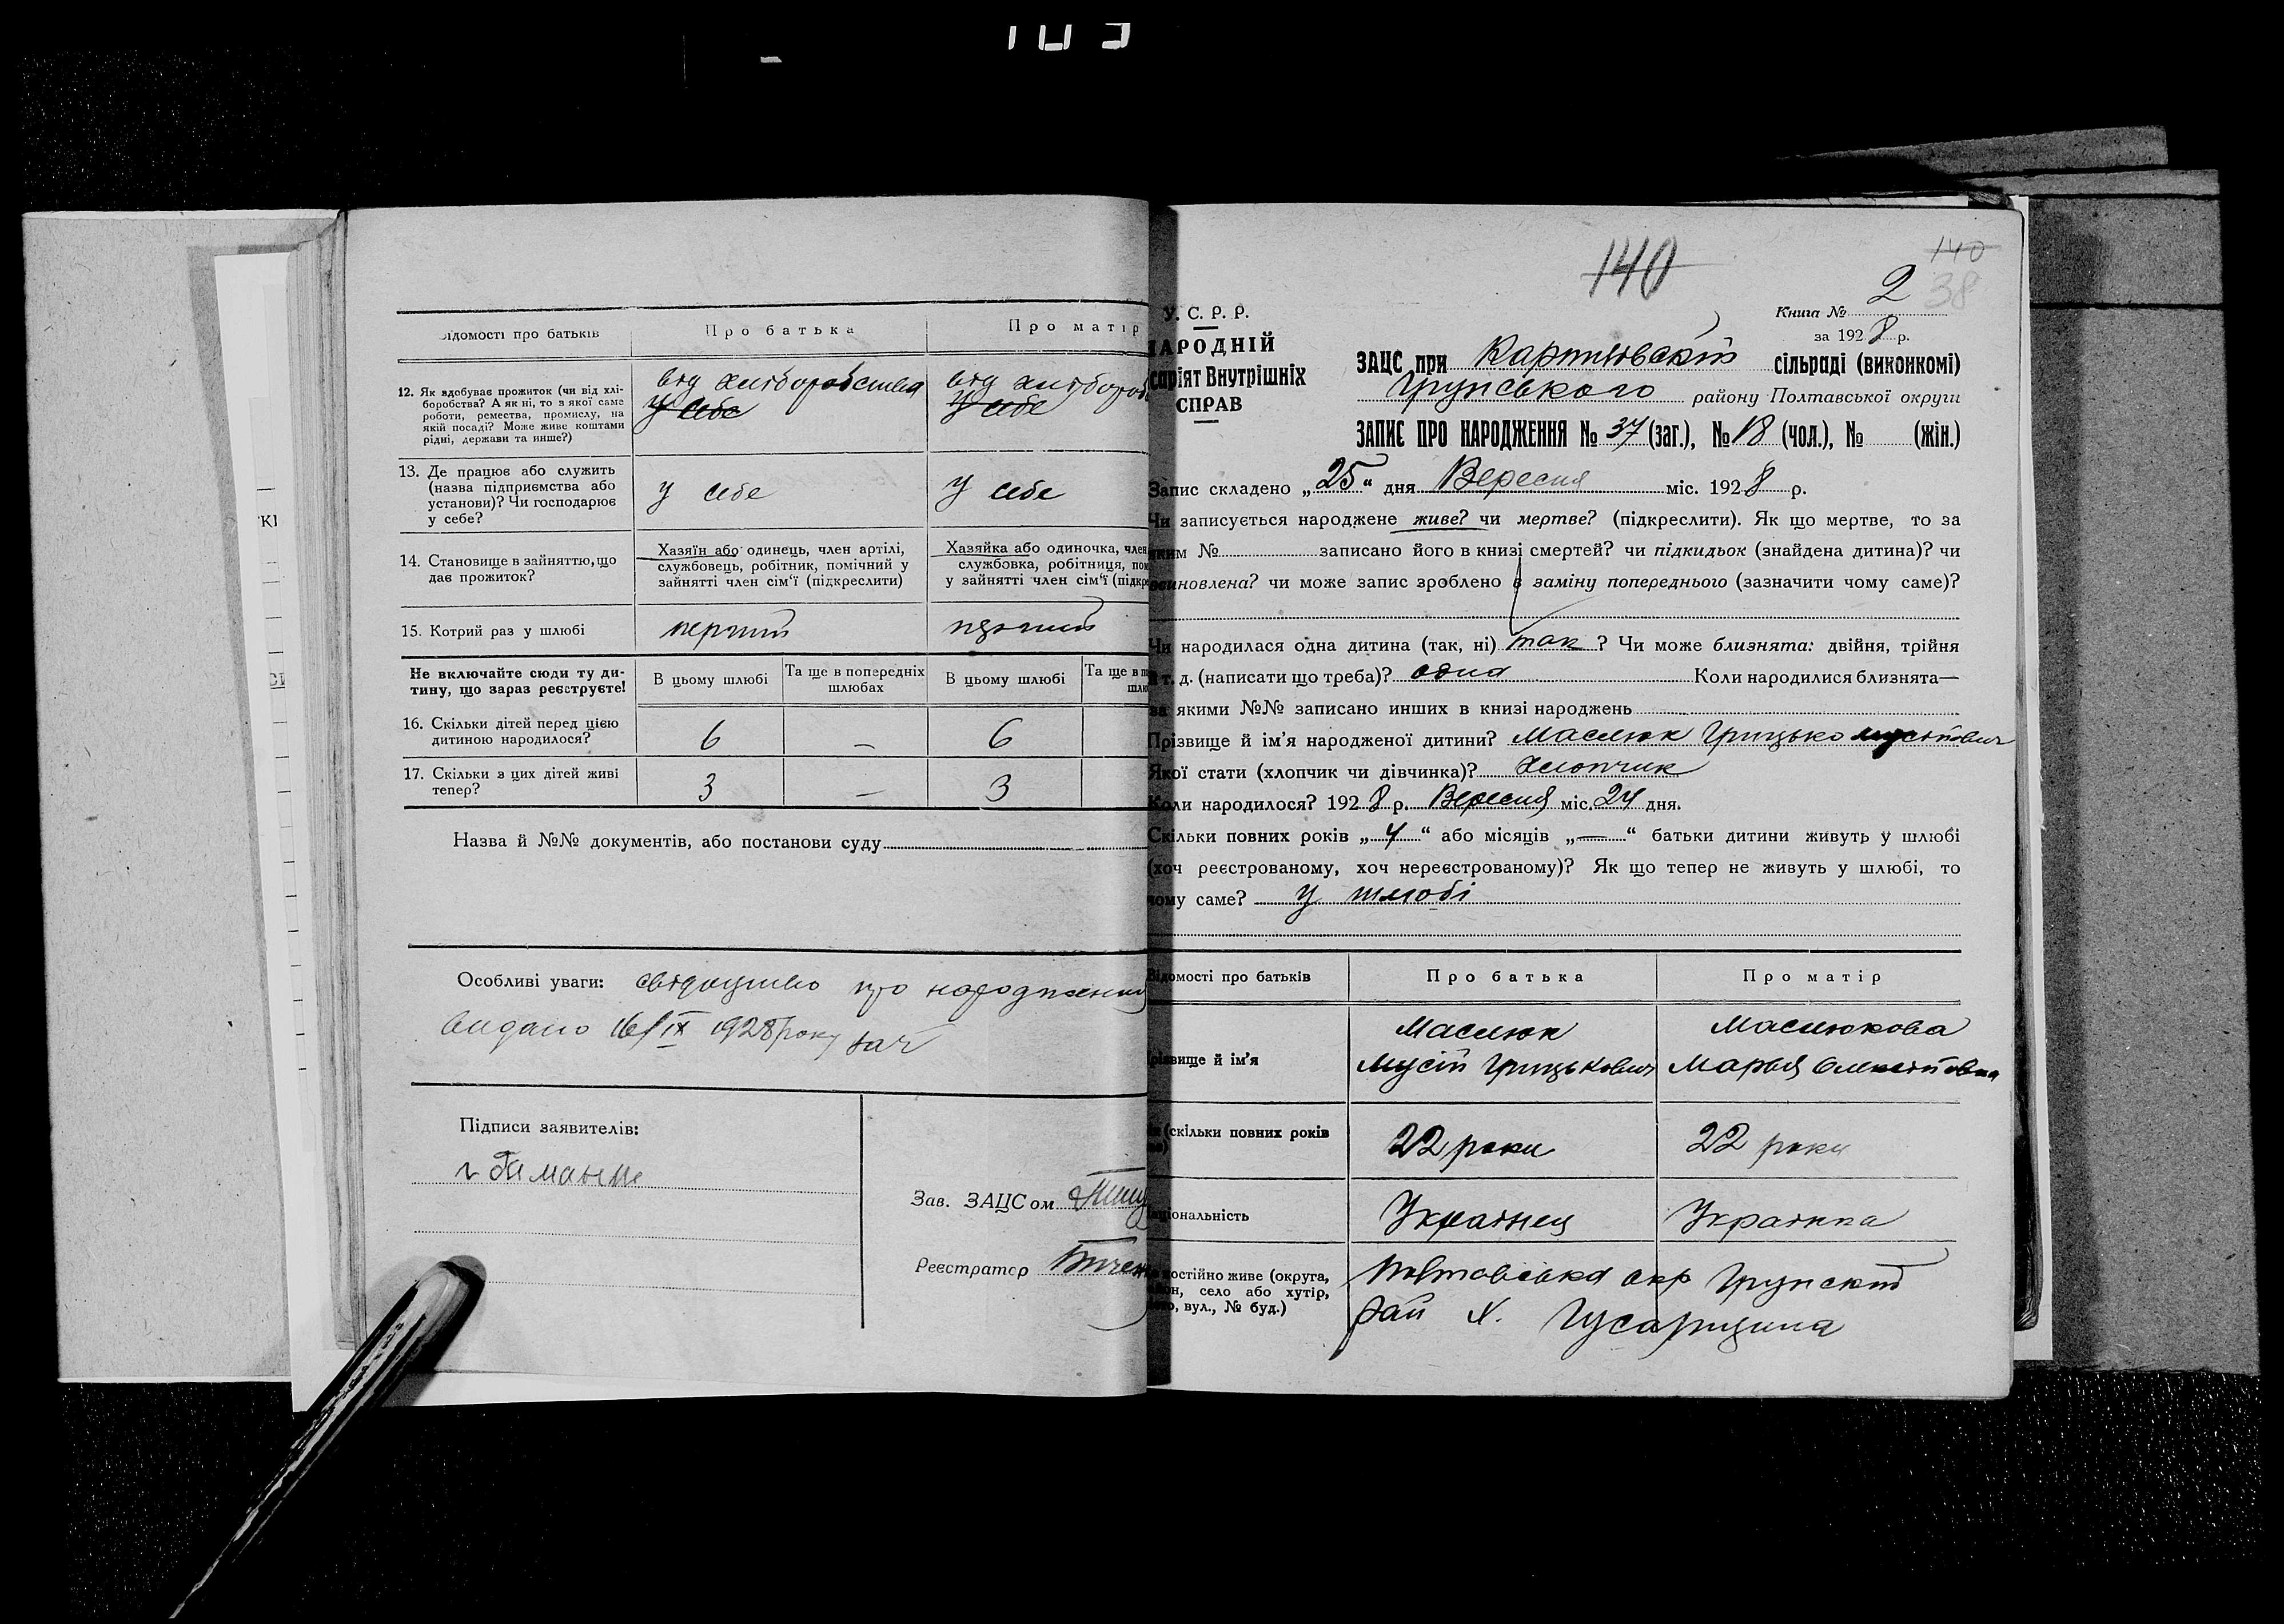 103
ідомості про батьків
Про батька
Про матір
12. Як здобуває прожиток (чи від хлі-
боробства? А як ні, то з якої саме
роботи, ремества, промислу, на
якій посаді? Може живе коштами
рідні, держави та инше?)
від хліборобства
у себе
від хлібороб
у себе
13. Де працює або служить
(назва підприємства або
установи)? Чи господарює
у себе?
у себе
у себе
14. Становище в зайняттю, що
дає прожиток?
Хазяїн або одинець, член артілі,
службовець, робітник, помічний у
зайнятті член сім'ї (підкреслити)
Хазяйка або одиночка, член
службовка, робітниця, пом
у зайнятті член сім'ї (підкре
15. Котрий раз у шлюбі
перший
перший
Не включайте сюди ту ди-
тину, що зараз реєструєте!
В цьому шлюбі
Та ще в попередніх
шлюбах
В цьому шлюбі
Та ще в п
шлю
16. Скільки дітей перед цією
дитиною народилося?
6 — 6
17. Скільки з цих дітей живі
тепер?
3 — 3
Назва й №№ документів, або постанови суду
Особливі уваги: свідоцтво про народження
видано 16/IX 1928 року
Підписи заявителів:
Зав. ЗАЦСом
Реєстратор
140
140
38
У. С. Р. Р.
НАРОДНІЙ
саріят Внутрішніх
СПРАВ
Книга № 2
за 1928 р.
ЗАЦС при Карпівській сільраді (виконкомі)
Грунського району Полтавської округи
ЗАПИС ПРО НАРОДЖЕННЯ № 37 (заг.), № 18 (чол.), № (жін.)
Запис складено „25“ дня Вересня міс. 1928 р.
Чи записується народжене живе? чи мертве? (підкреслити). Як що мертве, то за
яким № записано його в книзі смертей? чи підкидьок (знайдена дитина)? чи
всиновлена? чи може запис зроблено в заміну попереднього (зазначити чому саме)?
Чи народилася одна дитина (так, ні) так? Чи може близнята: двійня, трійня
й т. д. (написати що треба)? одна Коли народилися близнята—
за якими №№ записано инших в книзі народжень
Прізвище й ім'я народженої дитини? Маслюк Грицько Мусійович
Якої стати (хлопчик чи дівчинка)? хлопчик
Коли народилося? 1928 р. Вересня міс. 24 дня.
Скільки повних років „4“ або місяців „—“ батьки дитини живуть у шлюбі
(хоч реєстрованому, хоч нереєстрованому)? Як що тепер не живуть у шлюбі, то
чому саме? у шлюбі
Відомості про батьків
Про батька
Про матір
різвище й ім'я
Маслюк
Мусій Грицькович
Маслюкова
Марья Олексіївна
(скільки повних років
22 роки
22 роки
аціональність
Українец
Українка
постійно живе (округа,
он, село або хутір,
о, вул., № буд.)
Полтавська окр Грунский
рай х. Гусарщина